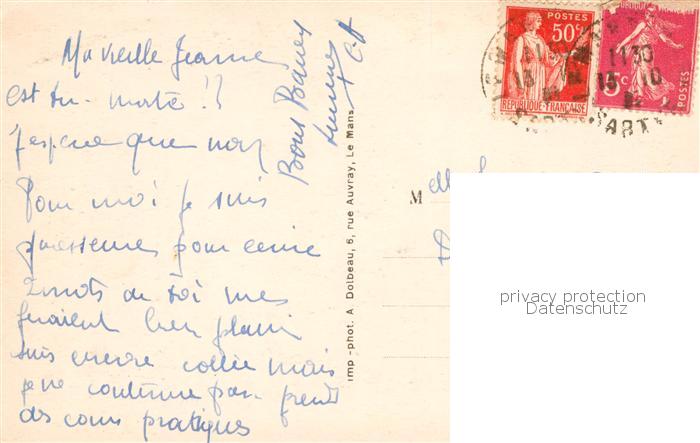 Ma vieille Jeanne
est tu morte !!
J'espère que non
Pour moi je suis
paresseuse pour écrire
2 mots de toi me
feraient bien plaisir
suis encore collée mais
je ne continue pas prend
des cours pratiques
Bons Baisers
Imp-phot. A. Dolbeau, 6, rue Auvray, Le Mans
M elle
POSTES
50c
REPUBLIQUE FRANÇAISE
POSTES
5c
1130
15 10
SARTHE
privacy protection
Datenschutz